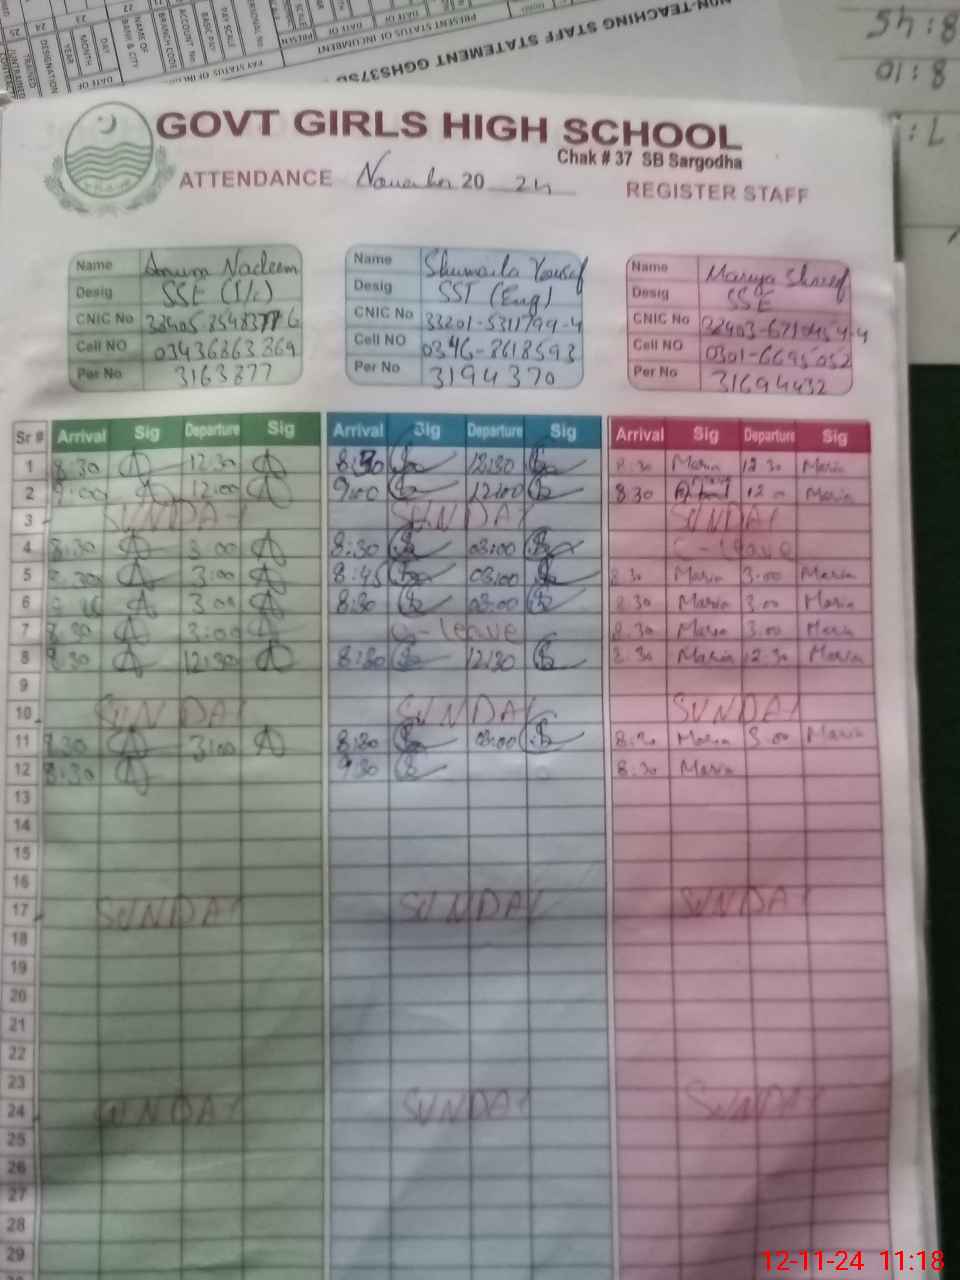 NON-TEACHING STAFF STATEMENT GGHS37SB
PRESENT STATUS OF INCUMBENT
8:45
8:10
GOVT GIRLS HIGH SCHOOL
Chak # 37 SB Sargodha
ATTENDANCE November 2024 REGISTER STAFF
Name Anum Nadeem
Desig SSE (I/c)
CNIC No
Cell NO 03436863869
Per No 3163877
Name Shumaila Yousaf
Desig SST (Eng)
CNIC No 33201-5311799-4
Cell NO 0346-8618593
Per No 3194370
Name Mariya Shareef
Desig SSE
CNIC No
Cell NO 0301-6695052
Per No 31694432
Sr # Arrival Sig Departure Sig Arrival Sig Departure Sig Arrival Sig Departure Sig
1 8:30 12:30 8:30 12:30 8:30 Maria 12 30 Maria
2 9:00 12:00 9:00 12:00 8 30 12 00 Maria
3 SUNDAY SUNDAY SUNDAY
4 8:30 3 00 8:30 03:00 C-leave
5 3:00 8:45 03:00 8 30 Maria 3.00 Maria
6 3 00 8:30 03:00 8 30 Maria 3 00 Maria
7 8:30 3:00 C-leave 8:30 Maria 3 00 Maria
8 8:30 12:30 8:30 12:30 8:30 Maria 12:30 Maria
9
10 SUNDAY SUNDAY SUNDAY
11 8:30 3:00 8:30 03:00 8:30 Maria 3 00 Maria
12 8:30 9:30 8:30 Maria
13
14
15
16
17 SUNDAY SUNDAY SUNDAY
18
19
20
21
22
23
24 SUNDAY SUNDAY SUNDAY
25
26
27
28
29
12-11-24 11:18